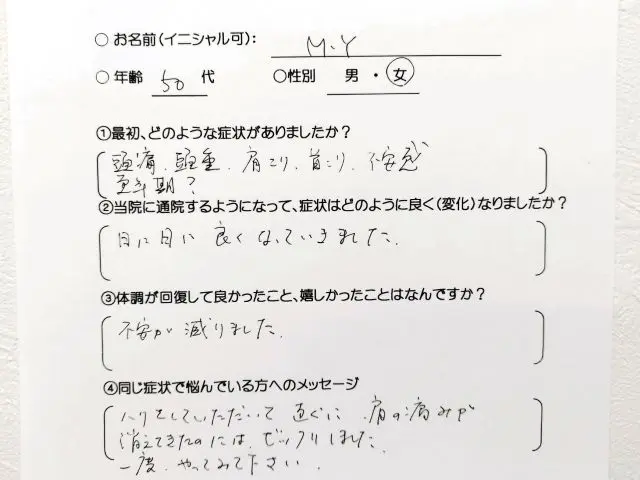 ○ お名前(イニシャル可): M.Y
○ 年齢 50 代 ○性別 男 ・ 女
①最初、どのような症状がありましたか?
頭痛、頭重、肩こり、首こり、不安感
更年期?
②当院に通院するようになって、症状はどのように良く(変化)なりましたか?
日に日に良くなっていきました。
③体調が回復して良かったこと、嬉しかったことはなんですか?
不安が減りました。
④同じ症状で悩んでいる方へのメッセージ
ハリをしていただいて直ぐに、肩の痛みが
消えてきたのには、ビックリしました。
一度、やってみて下さい。